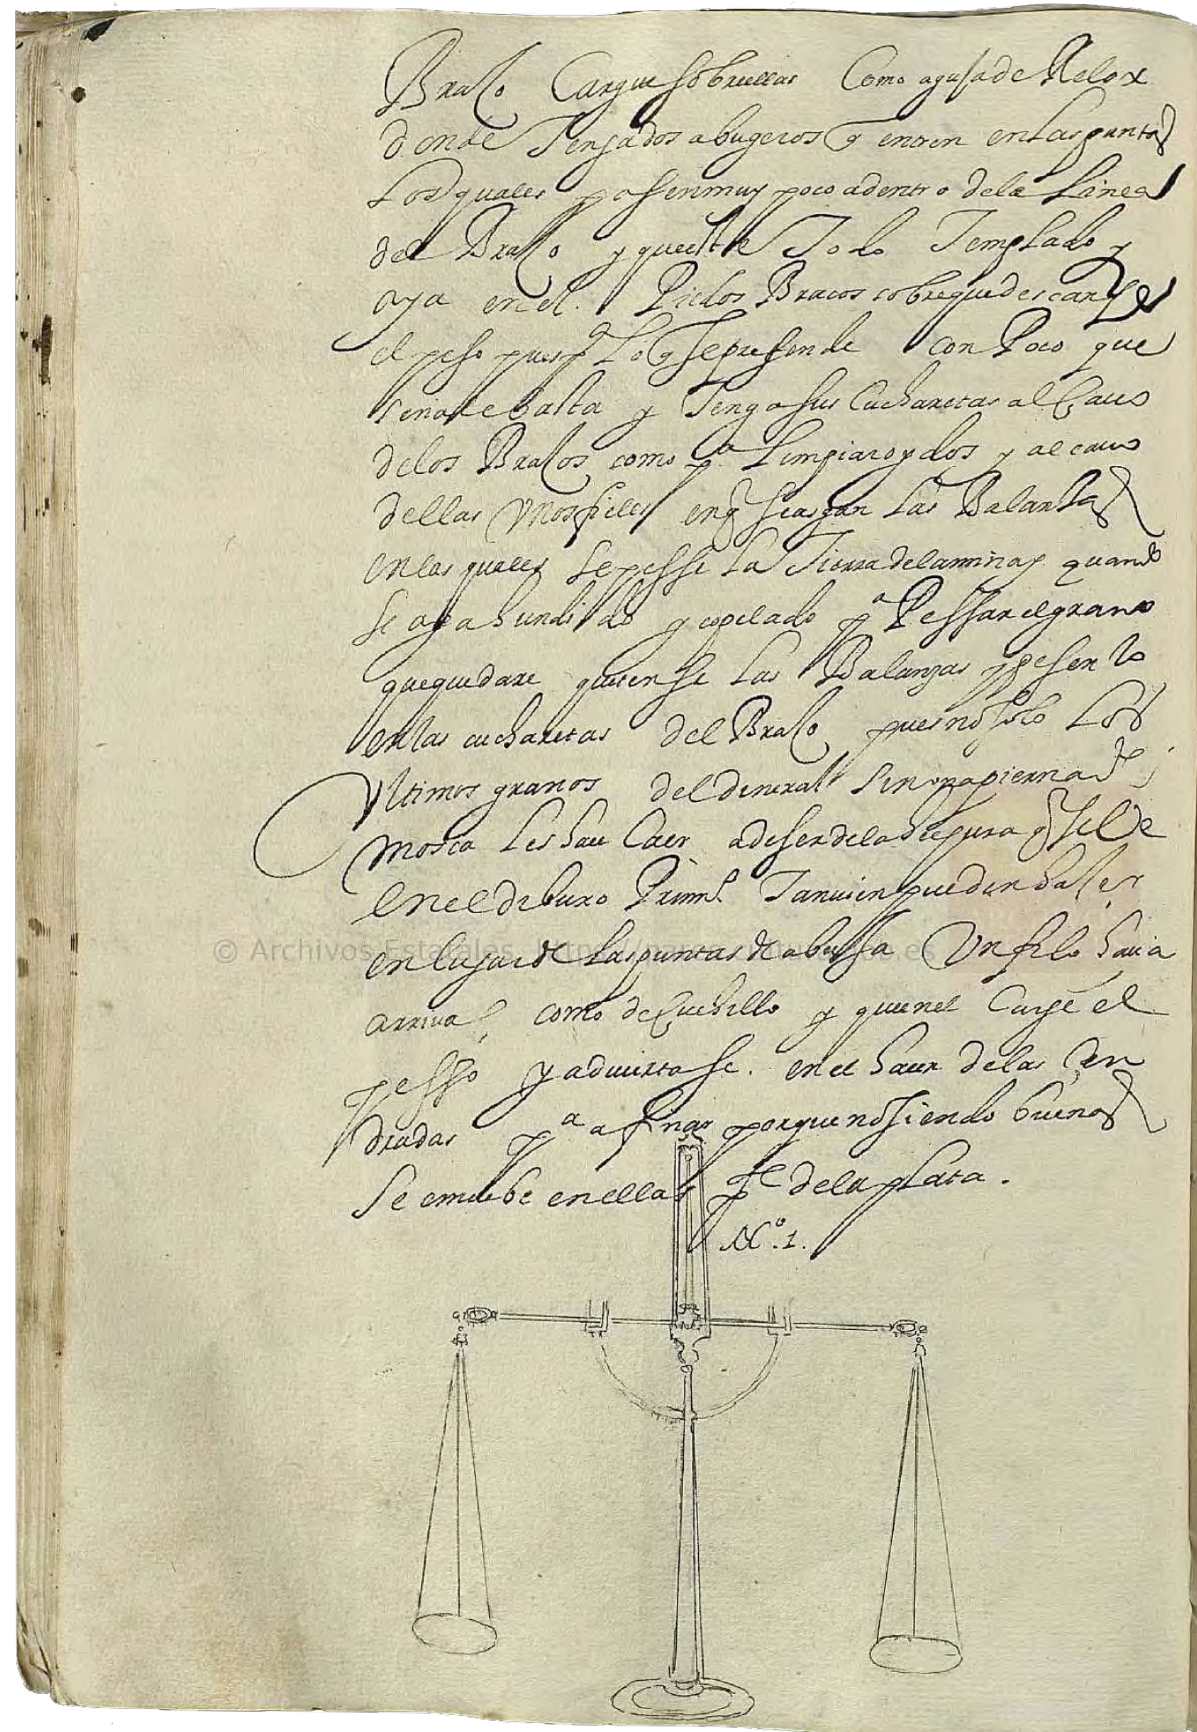 Braço Cargue sobre ellas Como aguja de Relox
donde Tenga dos abugeros q entren en las puntas
Los quales passen muy poco adentro de la Linea
del Braço y que este Todo Templado y
aya en el Braços sobre que descanse
el peso pues Lo q se pretende con Poco que
sea basta y Tenga sus Cucharetas al Cauo
de los Braços como pª Limpiar oydos y al cauo
dellas en q se asgan las Balanzas
en las quales se pesse la Tierra de la mina y quando
se aya hundido y copelado pª Pessar el grano
que quedare quitense las Balanzas y pesenlo
en las cucharetas del Braço pues no solo Los
Vltimos granos del dineral sino vna pierna de
mosca Les haze Caer a de ser de la hechura q se Ve
en el dibuxo Primº Tanuien pueden hacer
en lugar de las puntas de abuja Un filo hacia
arriua como de Cuchillo y que en el Carge el
pesso y aduiertase. en el hacer de las Cen
dradas pª afinar porque no siendo buenas
se embebe en ellas pte de la plata.
N.º 1.
© Archivos Estatales,